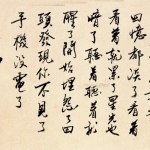 回憶都淡了看着
看着就累了星光也
暗了聽着聽着就
醒了開始埋怨了回
頭發現你不見了
手機没電了